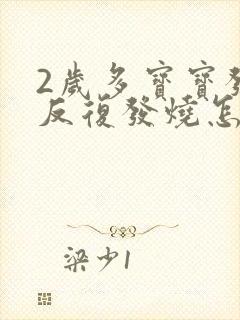 2歲多寶寶發
反復發燒怎
梁少1